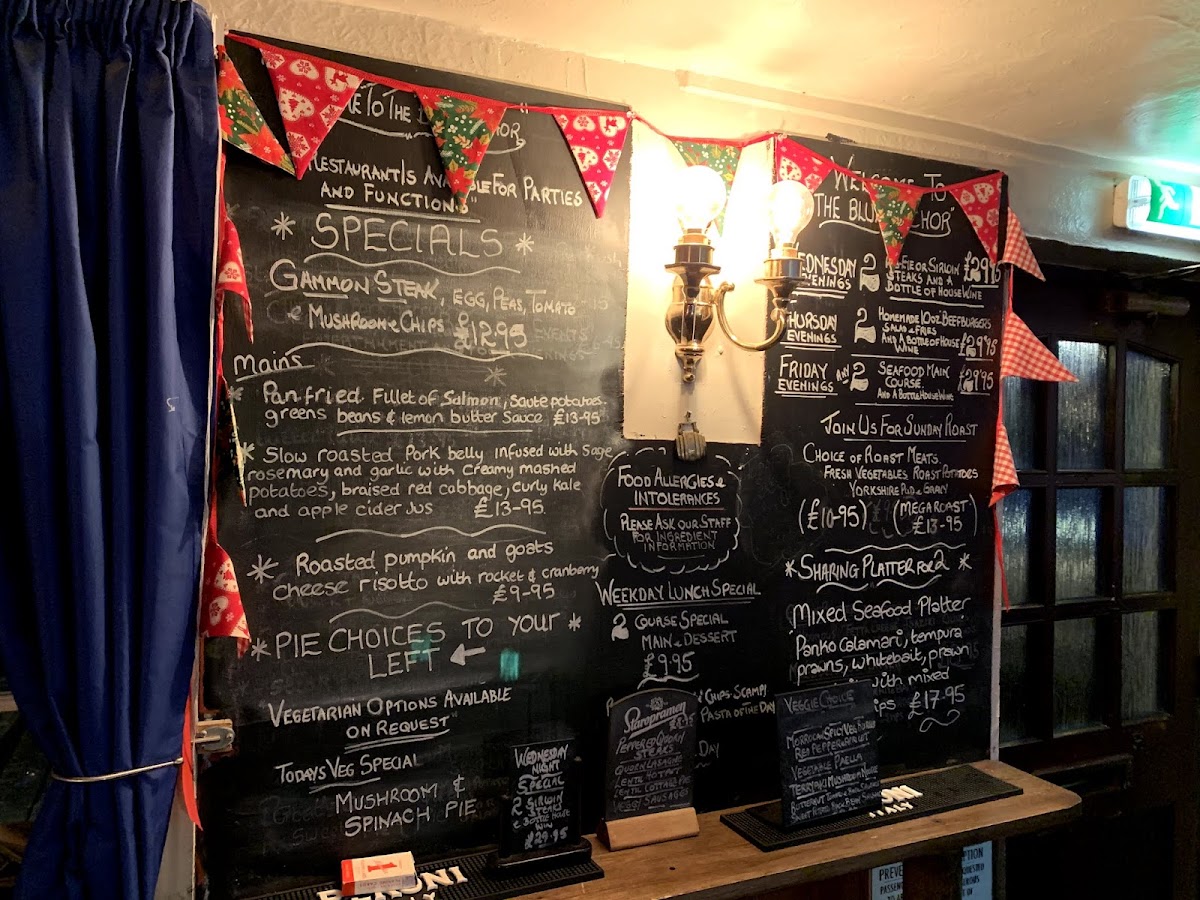 To The
Restaurant Is For Parties
and Functions"
* Specials *
Gammon Steak, Egg, Peas, Tomato
& Mushroom & Chips £12.95
Mains
* Panfried Fillet of Salmon, Saute potatoes
greens beans & lemon butter Sauce £13-95
* Slow roasted Pork belly infused with Sage
rosemary and garlic with creamy mashed
potatoes, braised red cabbage, curly kale
and apple cider Jus £13-95
* Roasted pumpkin and goats
cheese risotto with rocket & cranberry
£9-95
* Pie Choices to your *
left ←
Vegetarian Options Available
on Request"
Todays Veg Special
Mushroom &
Spinach Pie
Food Allergies &
Intolerances
Please Ask our Staff
for Ingredient
Information
Weekday Lunch Special
2 Course Special
Main & Dessert
9.95
Chips-Scampi
Pasta of the Day
Day
Welcome To
"The Blue
Wednesday
Evenings
2
or Sirloin
Steaks and a
Bottle of House Wine
£29.95
Thursday
Evenings
2
Homemade 10oz Beefburgers
Salad & Fries
and a Bottle of House
Wine
£29.95
Friday
Evenings
Any 2
Seafood Main
Course.
and a Bottle House Wine
£29.95
Join Us For Sunday Roast
Choice of Roast Meats.
Fresh Vegetables, Roast Potatoes
Yorkshire Pud & Gravy
(£10-95) (Mega Roast
£13-95)
* Sharing Platter for 2 *
Mixed Seafood Platter
Panko Calamari, tempura
prawns, whitebait, prawn
with mixed
£17.95
Wednesday
Night
Special
2 Sirloin
Steaks
& Bottle House
Wine
£29.95
Staropramen
Peppered Quorn
Steaks
Quorn Lasagne
Lentil Hotpot
Lentil Cottage Pie
Veggy Sausages
Veggie Choice
Morrocan Spicy Veg
Red Pepper
Vegetable Paella
Terriyaki Mushroom Noodle
Butternut
Bean
1
PERONI
PREVE